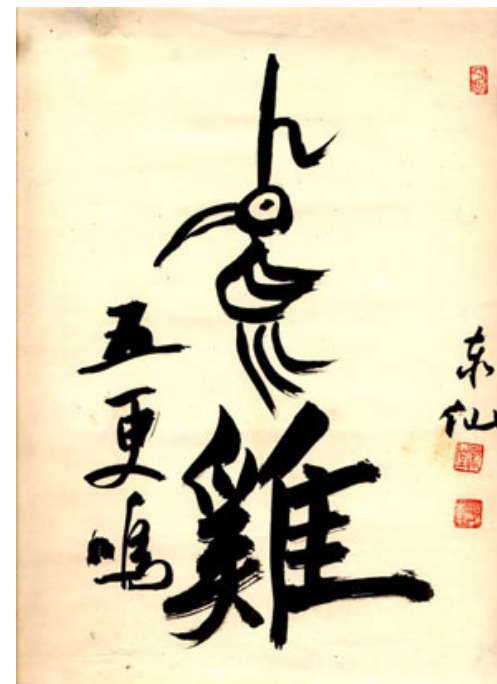 雞
五更鸣
东仙